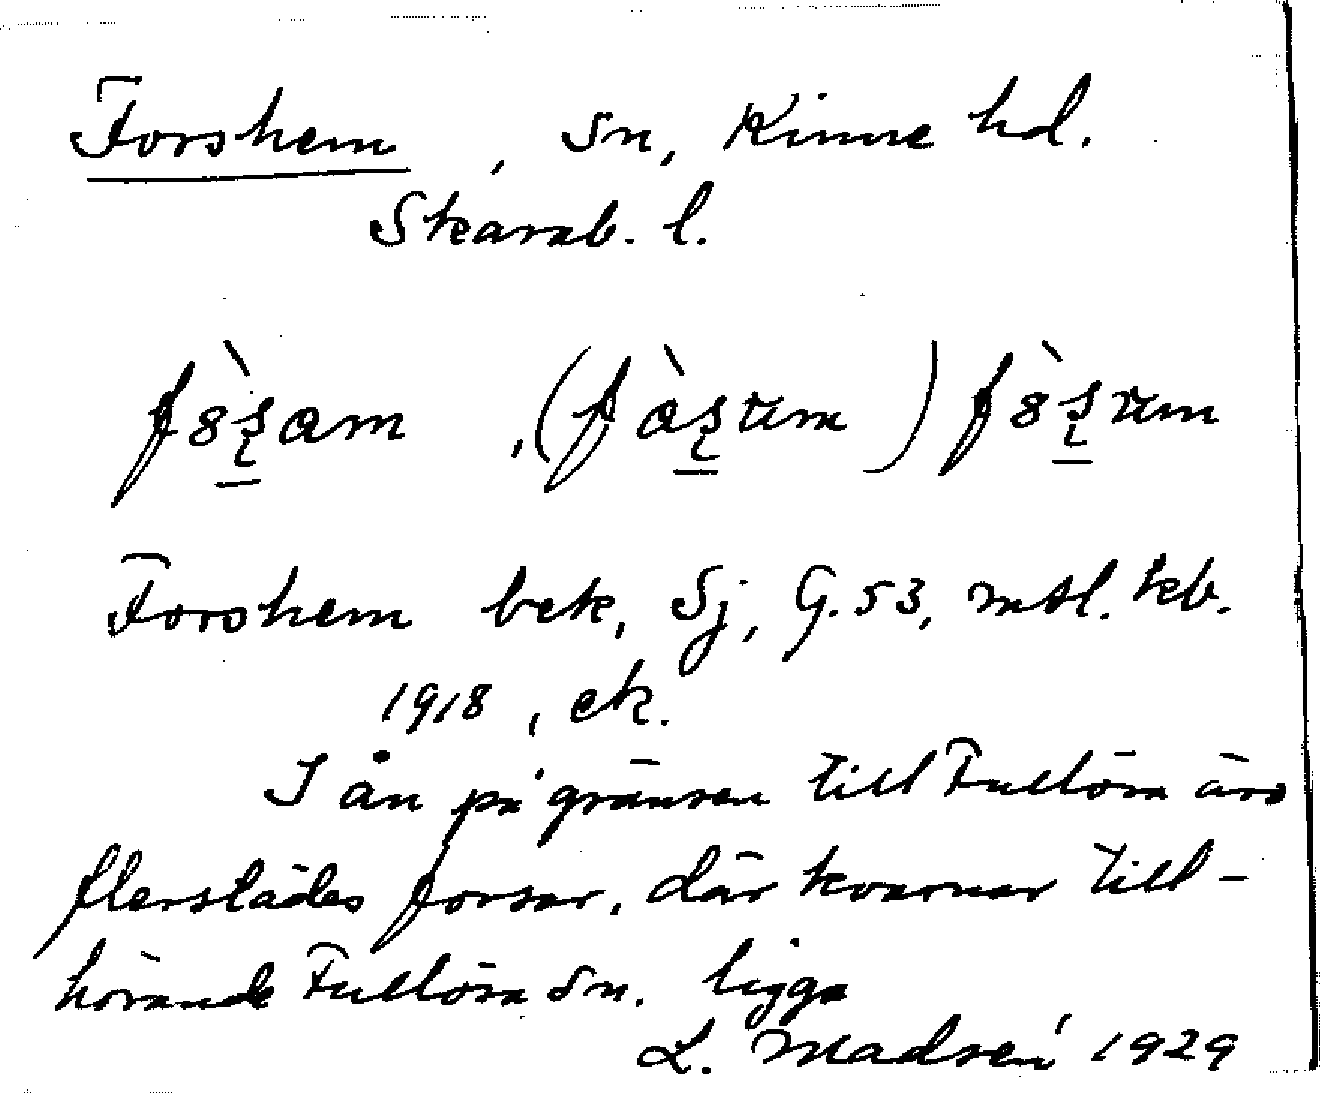 Forshem, sn, Kinne hd.
Skarab. l.
Forshem bek, Sj, G. 53, mtl. kb.
1918, ek.
I ån på gränsen till Fullösa äro
flerstädes forsar, där kvarnar till-
hörande Fullösa sn. ligga
L. Madsen 1929